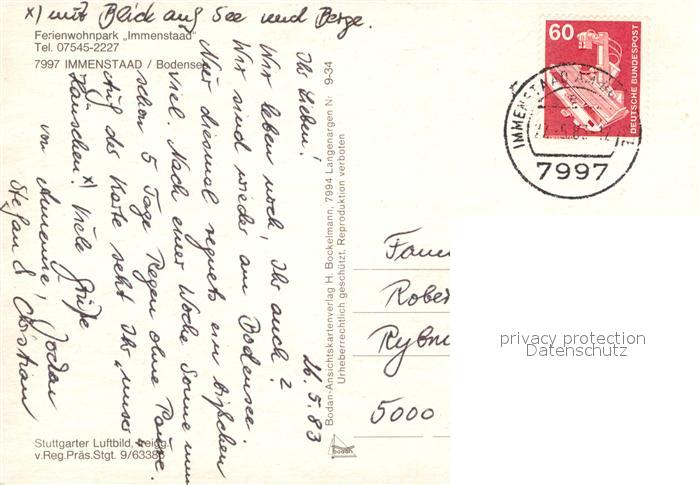 x) mit Blick auf See und Berge.
Ferienwohnpark „Immenstaad"
Tel. 07545-2227
7997 IMMENSTAAD / Bodensee
26.5.83
Ihr Lieben!
Wir leben noch, Ihr auch?
Wir sind wieder am Bodensee.
Nur diesmal regnets ein bißchen
viel. Nach einer Woche Sonne nun
schon 5 Tage Regen ohne Pause.
Auf der Karte seht Ihr „unser"
Häuschen! x) Viele Grüße
von Annemie, Jordan
Stefan & Christian
Stuttgarter Luftbild,
v.Reg.Präs.Stgt. 9/6338
Bodan-Ansichtskartenverlag H. Bockelmann, 7994 Langenargen Nr. 9-34
Urheberrechtlich geschützt, Reproduktion verboten
bodan
60
DEUTSCHE BUNDESPOST
IMMENSTAAD
7997
Fam
Rober
Rybn
5000
privacy protection
Datenschutz